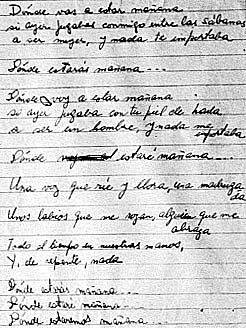 Dónde vas a estar mañana
si ayer jugabas conmigo entre las sábanas
a ser mujer, y nada te importaba
Dónde estarás mañana...
Dónde voy a estar mañana
si ayer jugaba con tu piel de hada
a ser un hombre, y nada me importaba
Dónde estaré mañana...
Una voz que ríe y llora, una madrugada
Unos labios que me rozan, alguien que me abraza
Todo el tiempo en nuestras manos,
Y, de repente, nada
Dónde estarás mañana...
Dónde estaré mañana...
Dónde estaremos mañana...